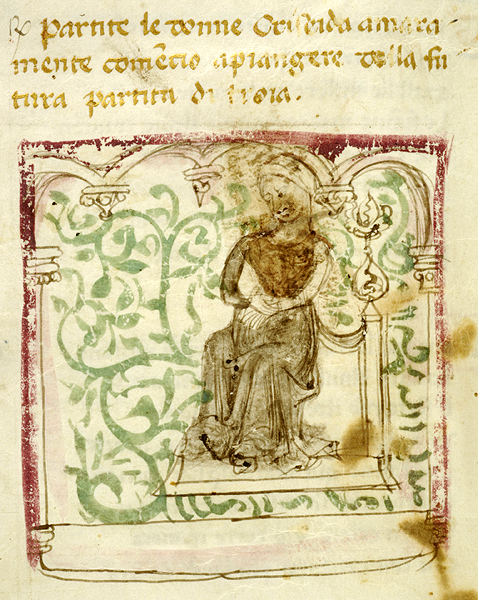 Partite le donne Griseida amara-
mente comēcio apiangere della fu
tura partita di troia.